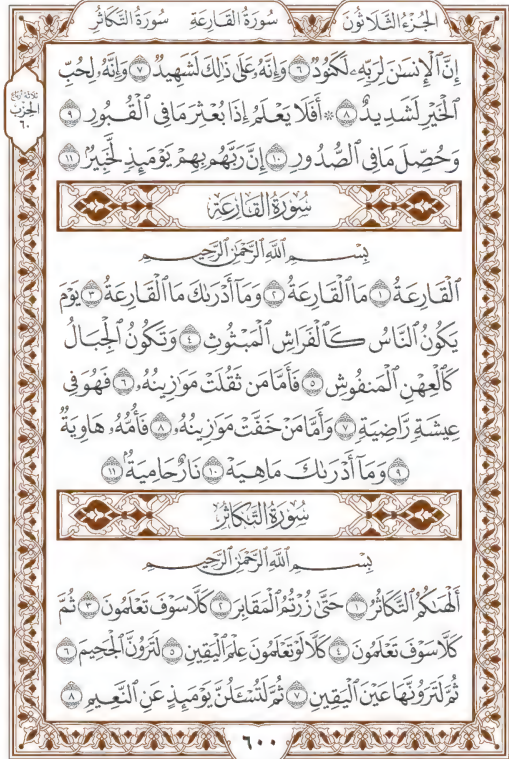 الجُزْءُ الثَّلَاثُونَ سُورَةُ القَارِعَةِ سُورَةُ التَّكَاثُرِ
إِنَّ ٱلْإِنسَٰنَ لِرَبِّهِۦ لَكَنُودٌ ٦ وَإِنَّهُۥ عَلَىٰ ذَٰلِكَ لَشَهِيدٌ ٧ وَإِنَّهُۥ لِحُبِّ
ثلاثة أرباع
الحزب
٦٠
ٱلْخَيْرِ لَشَدِيدٌ ٨ ۞ أَفَلَا يَعْلَمُ إِذَا بُعْثِرَ مَا فِى ٱلْقُبُورِ ٩
وَحُصِّلَ مَا فِى ٱلصُّدُورِ ١٠ إِنَّ رَبَّهُم بِهِمْ يَوْمَئِذٍ لَّخَبِيرٌۢ ١١
سُورَةُ القَارِعَةِ
بِسْمِ ٱللَّهِ ٱلرَّحْمَٰنِ ٱلرَّحِيمِ
ٱلْقَارِعَةُ ١ مَا ٱلْقَارِعَةُ ٢ وَمَآ أَدْرَىٰكَ مَا ٱلْقَارِعَةُ ٣ يَوْمَ
يَكُونُ ٱلنَّاسُ كَٱلْفَرَاشِ ٱلْمَبْثُوثِ ٤ وَتَكُونُ ٱلْجِبَالُ
كَٱلْعِهْنِ ٱلْمَنفُوشِ ٥ فَأَمَّا مَن ثَقُلَتْ مَوَٰزِينُهُۥ ٦ فَهُوَ فِى
عِيشَةٍ رَّاضِيَةٍ ٧ وَأَمَّا مَنْ خَفَّتْ مَوَٰزِينُهُۥ ٨ فَأُمُّهُۥ هَاوِيَةٌ
٩ وَمَآ أَدْرَىٰكَ مَا هِيَهْ ١٠ نَارٌ حَامِيَةٌۢ ١١
سُورَةُ التَّكَاثُرِ
بِسْمِ ٱللَّهِ ٱلرَّحْمَٰنِ ٱلرَّحِيمِ
أَلْهَىٰكُمُ ٱلتَّكَاثُرُ ١ حَتَّىٰ زُرْتُمُ ٱلْمَقَابِرَ ٢ كَلَّا سَوْفَ تَعْلَمُونَ ٣ ثُمَّ
كَلَّا سَوْفَ تَعْلَمُونَ ٤ كَلَّا لَوْ تَعْلَمُونَ عِلْمَ ٱلْيَقِينِ ٥ لَتَرَوُنَّ ٱلْجَحِيمَ ٦
ثُمَّ لَتَرَوُنَّهَا عَيْنَ ٱلْيَقِينِ ٧ ثُمَّ لَتُسْـَٔلُنَّ يَوْمَئِذٍ عَنِ ٱلنَّعِيمِ ٨
٦٠٠